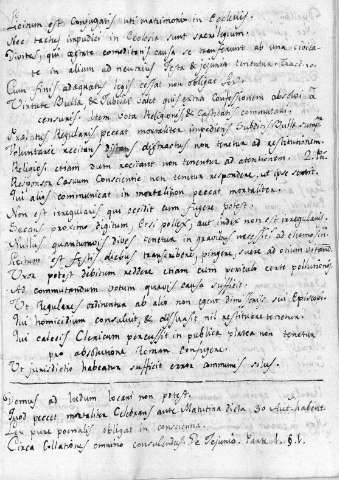 Licitum est Conjugatis uti matrimonio in Ecclesiis.
Nec tactus impudici in Ecclesia sunt sacrilegium.
Divites, qui aestate commoditatis causa se transferunt ab una civita-
te in aliam ad neutrius festa & jejunia tenentur.
Cum finis adaequatus legis cessat non obligat
Virtute Bullae & Jubilaei valet quis extra Confessionem absolvi a
censuris. Item vota Religionis & Castitatis commutari.
Praelatus Regularis peccat mortaliter impediens subditis Bullae
Voluntarie recitans distractus non tenetur ad restitutionem.
Religiosi etiam dum recitant non tenentur ad attentionem.
Responsor Casuum Conscientiae non tenetur respondere, ut ipse sentit.
Qui alius communicat in mortali non peccat mortaliter.
Non est irregularis qui occidit cum fugere potest.
Secans proximo digitum, pollex, aut index non est irregularis.
Nullus quantumvis dives tenetur in gravibus necessit. ad
Licitum est festis diebus transcribere, pingere, suere ad otium vitand.
Uxor potest debitum reddere etiam cum periculo certo pollutionis.
Ad commutandum votum quaevis causa sufficit.
Ut Regulares ordinentur ab alio non egent dimissoriis sui Episcopi.
Qui homicidium consuluit, & dissuasit nil restituere tenetur.
Qui calceis Clericum percussit in publica platea non tenetur
pro absolutione Romam confugere.
Ut jurisdictio habeatur sufficit error communis solus.
Domus ad ludum locari non potest.
Quod peccet mortaliter Celebrans ante Matutina dicta 30 Aut. habent.
Lex pure poenalis obligat in conscientia.
Circa Collationes omnino consulendus. De Jejunio. Parte 1. §. 1.